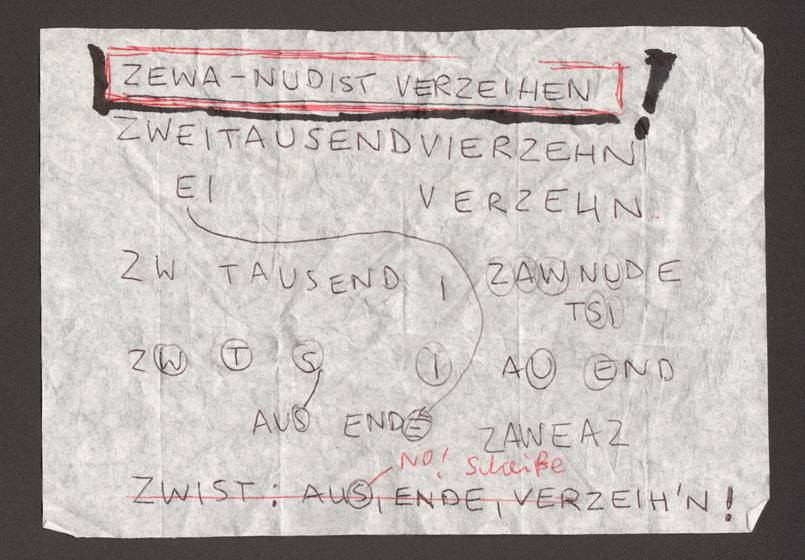 ZEWA-NUDIST VERZEIHEN!
ZWEITAUSENDVIERZEHN
EI VERZEHN
ZW TAUSEND I ZAWNUDE
TSI
ZW T S I AU END
AUS ENDE ZAWEAZ
NO! Scheiße
ZWIST: AUS, ENDE, VERZEIH'N!